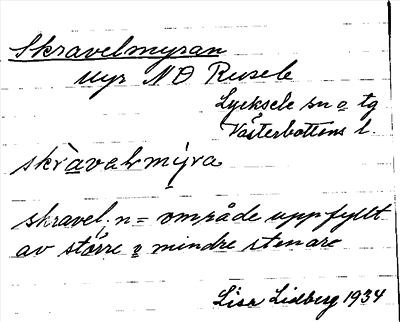 Skravelmyran
myr NO Rusele
Lycksele sn o tg
Västerbottens l.
skràvalmýra
skravel, n = område uppfyllt
av större o mindre stenar
Lisa Lidberg 1934